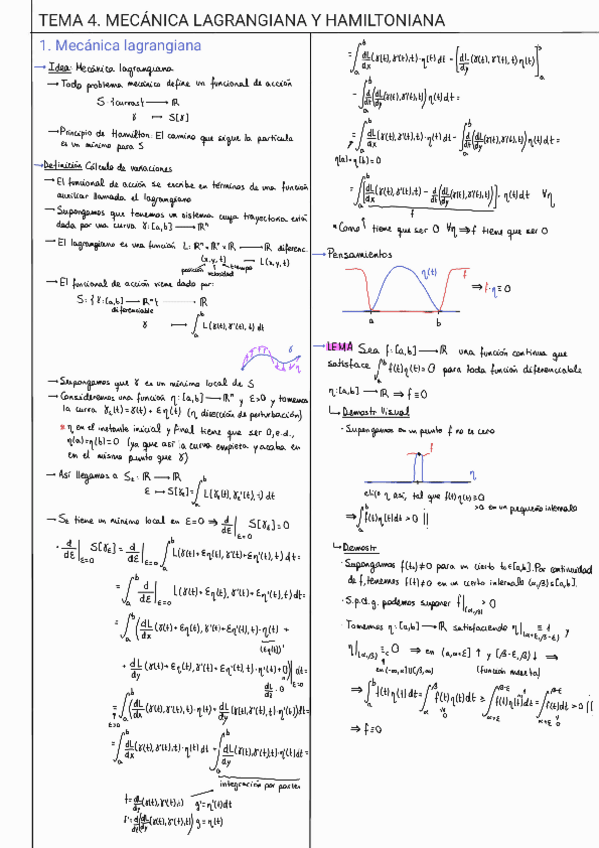 TEMA 4. MECÁNICA LAGRANGIANA Y HAMILTONIANA
1. Mecánica lagrangiana
→ Idea: Mecánica lagrangiana
→ Todo problema mecánico define un funcional de acción
S: {curvas} → ℝ
γ ↦ S[γ]
→ Principio de Hamilton: El camino que sigue la partícula
es un mínimo para S
→ Definición Cálculo de variaciones
→ El funcional de acción se escribe en términos de una función
auxiliar llamada el lagrangiano
→ Supongamos que tenemos un sistema cuya trayectoria está
dada por una curva γ: [a,b] → ℝⁿ
→ El lagrangiano es una función L: ℝⁿ × ℝⁿ × ℝ → ℝ diferenc.
(x, y, t) ↦ L(x,y,t)
posición velocidad tiempo
→ El funcional de acción viene dado por:
S: {γ: [a,b] → ℝⁿ} → ℝ
diferenciable
γ ↦ ∫ₐᵇ L(γ(t), γ'(t), t) dt
γ
η
→ Supongamos que γ es un mínimo local de S
→ Consideremos una función η: [a,b] → ℝⁿ y ε>0 y tomemos
la curva γ_ε(t) = γ(t) + εη(t) (η dirección de perturbación)
* η en el instante inicial y final tiene que ser 0, e.d.,
η(a)=η(b)=0 (ya que así la curva empieza y acaba en
en el mismo punto que γ)
→ Así llegamos a S_ε: ℝ → ℝ
ε ↦ S[γ_ε] = ∫ₐᵇ L(γ_ε(t), γ_ε'(t), t) dt
→ S_ε tiene un mínimo local en ε=0 ⇒ d/dε|_{ε=0} S[γ_ε] = 0
· d/dε|_{ε=0} S[γ_ε] = d/dε|_{ε=0} ∫ₐᵇ L(γ(t)+εη(t), γ'(t)+εη'(t), t) dt =
= ∫ₐᵇ d/dε|_{ε=0} L(γ(t)+εη(t), γ'(t)+εη'(t), t) dt =
= ∫ₐᵇ (dL/dx (γ(t)+εη(t), γ'(t)+εη'(t), t)·η(t) +
(εη(t))'
+ dL/dy (γ(t)+εη(t), γ'(t)+εη'(t), t)·η'(t) + 0)|_{ε=0} dt =
dL/dt · 0
= ∫ₐᵇ (dL/dx (γ(t), γ'(t), t)·η(t) + dL/dy (γ(t), γ'(t), t)·η'(t)) dt =
= ∫ₐᵇ dL/dx (γ(t), γ'(t), t)·η(t) dt + ∫ₐᵇ dL/dy (γ(t), γ'(t), t)·η'(t) dt =
integración por partes
f = dL/dy (γ(t), γ'(t), t) g' = η'(t) dt
f' = d/dt (dL/dy (γ(t), γ'(t), t)) g = η(t)
= ∫ₐᵇ dL/dx (γ(t), γ'(t), t)·η(t) dt - [dL/dy (γ(t), γ'(t), t) η(t)]ₐᵇ
- ∫ₐᵇ d/dt (dL/dy (γ(t), γ'(t), t)) η(t) dt =
= ∫ₐᵇ dL/dx (γ(t), γ'(t), t)·η(t) dt - ∫ₐᵇ d/dt (dL/dy (γ(t), γ'(t), t)) η(t) dt =
η(a)=η(b)=0
= ∫ₐᵇ [dL/dx (γ(t), γ'(t), t) - d/dt (dL/dy (γ(t), γ'(t), t))]·η(t) dt ∀η
f
* Como ↑ tiene que ser 0 ∀η ⇒ f tiene que ser 0
→ Pensamientos
f η(t) f
⇒ f·η ≡ 0
a b
→ LEMA Sea f: [a,b] → ℝ una función continua que
satisface ∫ₐᵇ f(t)η(t) = 0 para toda función diferenciable
η: [a,b] → ℝ ⇒ f ≡ 0
↳ Demostr Visual
· Supongamos en un punto f no es cero
f
η
elijo η así, tal que f(t)η(t) ≡ 0
>0 en un pequeño intervalo
⇒ ∫ₐᵇ f(t)η(t)dt > 0 !!
↳ Demostr
· Supongamos f(t₀) ≠ 0 para un cierto t₀∈[a,b]. Por continuidad
de f, tenemos f(t) ≠ 0 en un cierto intervalo (α,β) ⊆ [a,b].
· S.p.d.g. podemos suponer f|_{(α,β)} > 0
· Tomemos η: [a,b] → ℝ satisfaciendo η|_{[α+ε,β-ε]} ≡ 1 y
η|_{(α,β)ᶜ} ≡ 0 ⇒ en (α, α+ε] ↑ y [β-ε, β) ↓ ⇒
en (-∞,α]∪[β,∞) (función meseta)
⇒ ∫ₐᵇ f(t)η(t)dt = ∫_α^β f(t)η(t)dt ≥ ∫_{α+ε}^{β-ε} f(t)η(t)dt = ∫_{α+ε}^{β-ε} f(t)dt > 0 !!
⇒ f ≡ 0